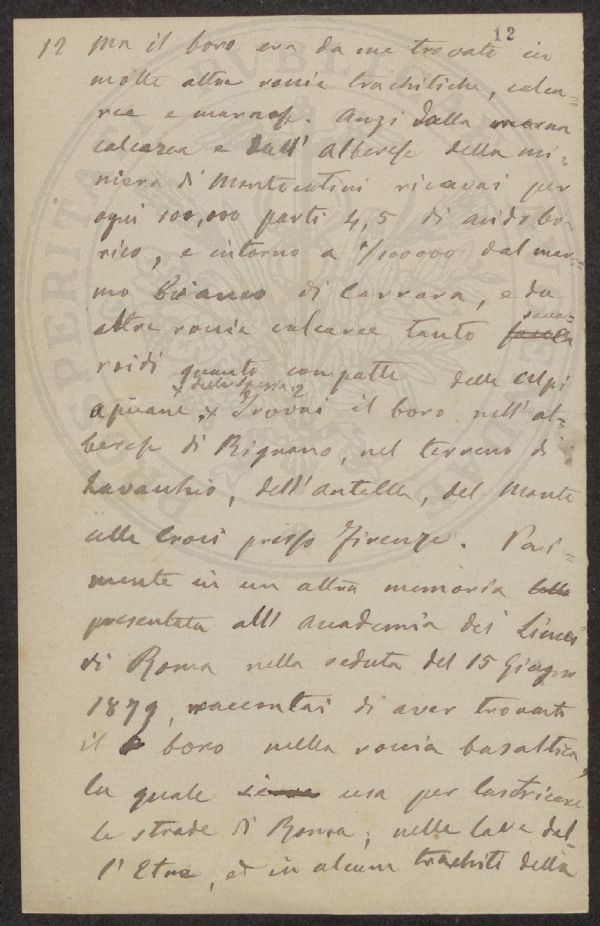 12
12 Ma il boro era da me trovato in
molte altre roccie trachitiche, calca=
ree e marnose. Anzi dalla marna
calcarea e dall' Alberese della mi=
niera di Montecatini ricavai per
ogni 100,000 parti 4,5 di acido bo=
rico, e intorno a 1/100000 dal mar=
mo bianco di Carrara, e da
altre roccie calcaree tanto
roidi quanto compatte delle alpi
x della Spezia
apuane. x Trovai il boro nell' al=
berese di Rignano, nel terreno di
Lavacchio, dell' Antella, del Monte
alle Croci presso Firenze. Pari=
mente in un altra memoria letta
presentata all Accademia dei Lincei
di Roma nella seduta del 15 Giugno
1879, raccontai di aver trovato
il boro nella roccia basaltica,
la quale si usa per lastricare
le strade di Roma; nelle lave del=
l' Etna, ed in alcuni trachiti della